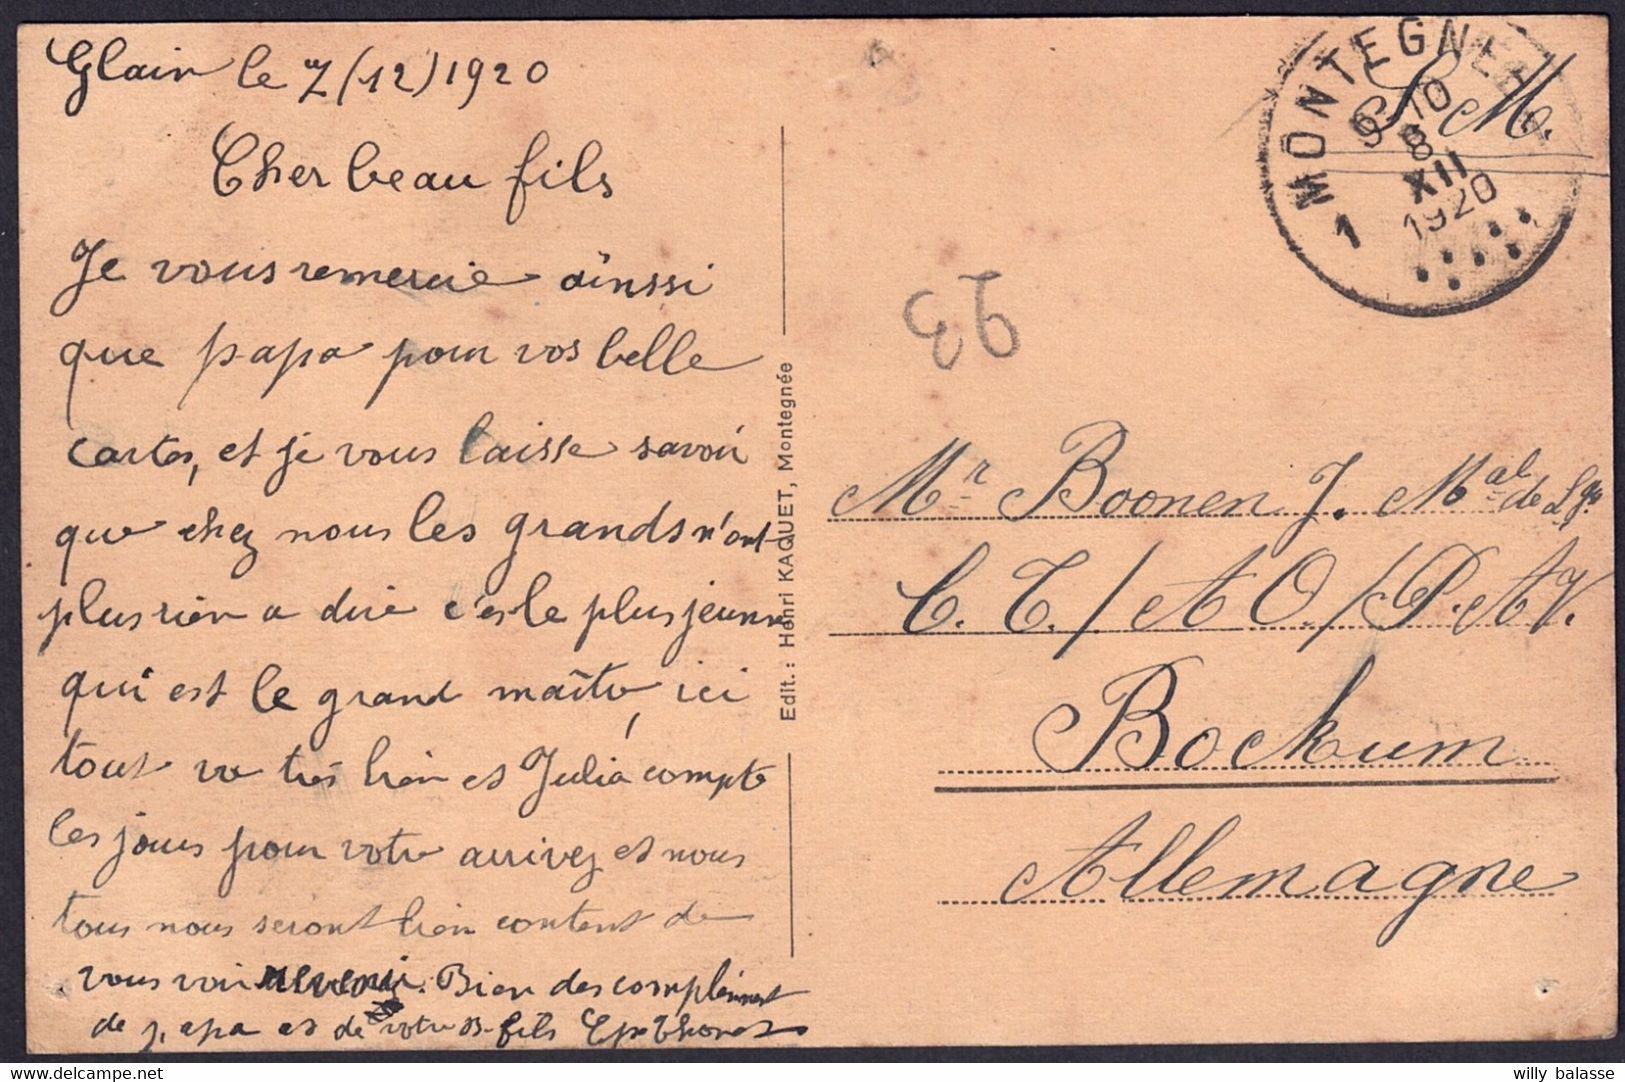 Glain le 7/(12)1920
Cher beau fils
Je vous remercie ainssi
que papa pour vos belle
cartes, et je vous laisse savoir
que chez nous les grands n'ont
plus rien a dire c'es le plus jeunne
qui est le grand maître, ici
tout va très bien et Julia compte
les jours pour votre arrivez et nous
tous nous seront bien content de
vous voir revenir. Bien des complément
de papa et de votre B-fils
Edit.: Henri KAQUET, Montegnée
MONTEGNEE 1
9-10
8
XII
1920
S. M.
93
Mr Boonen J. Mal de Lgis
C. T. / A O. / P. A V.
Bochum
Allemagne
willy balasse